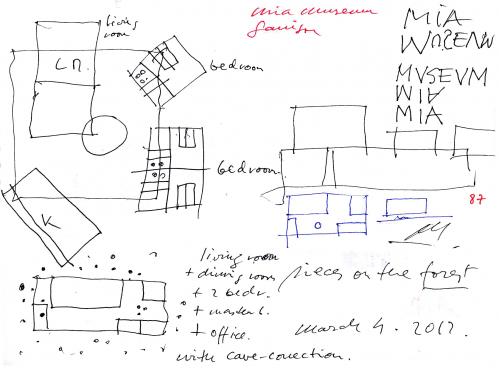 living
room
L R.
bedroom
bedroom
K
mia museum
MIA
MUSEUM
MUSEUM
MIA
MIA
87
living room
+ dining room
+ 2 bedr.
+ master b.
+ office.
with cave-conection.
pieces on the forest
march 4. 2012.